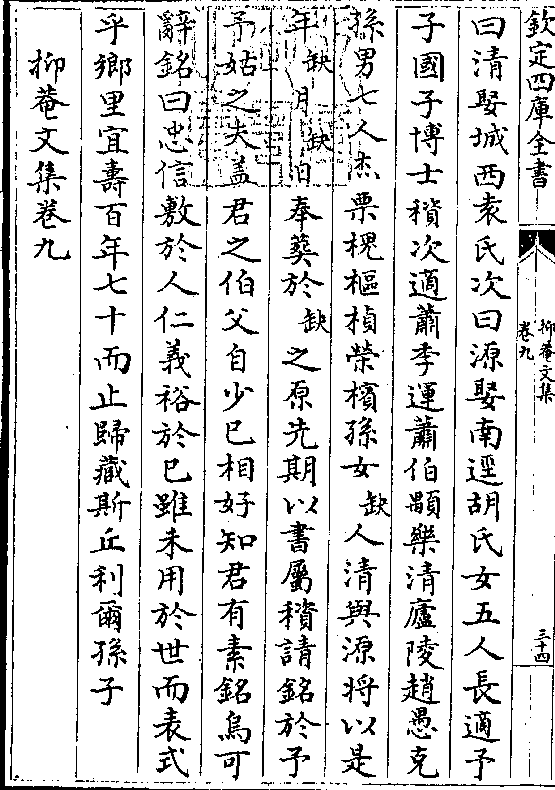 欽定四庫全書
抑菴文集
卷九
三十四
曰清娶城西袁氏次曰源娶南逕胡氏女五人長適予
子國子博士稹次適蕭季運蕭伯顒樂清廬陵趙愚克
孫男七人杰栗槐樞楨榮檳孫女缺人清與源將以是
年缺月缺日奉葬於缺之原先期以書屬稹請銘於予
予姑之夫蓋君之伯父自少已相好知君有素銘烏可
辭銘曰忠信敷於人仁義裕於已雖未用於世而表式
乎鄉里宜壽百年七十而止歸藏斯丘利爾孫子
抑菴文集卷九